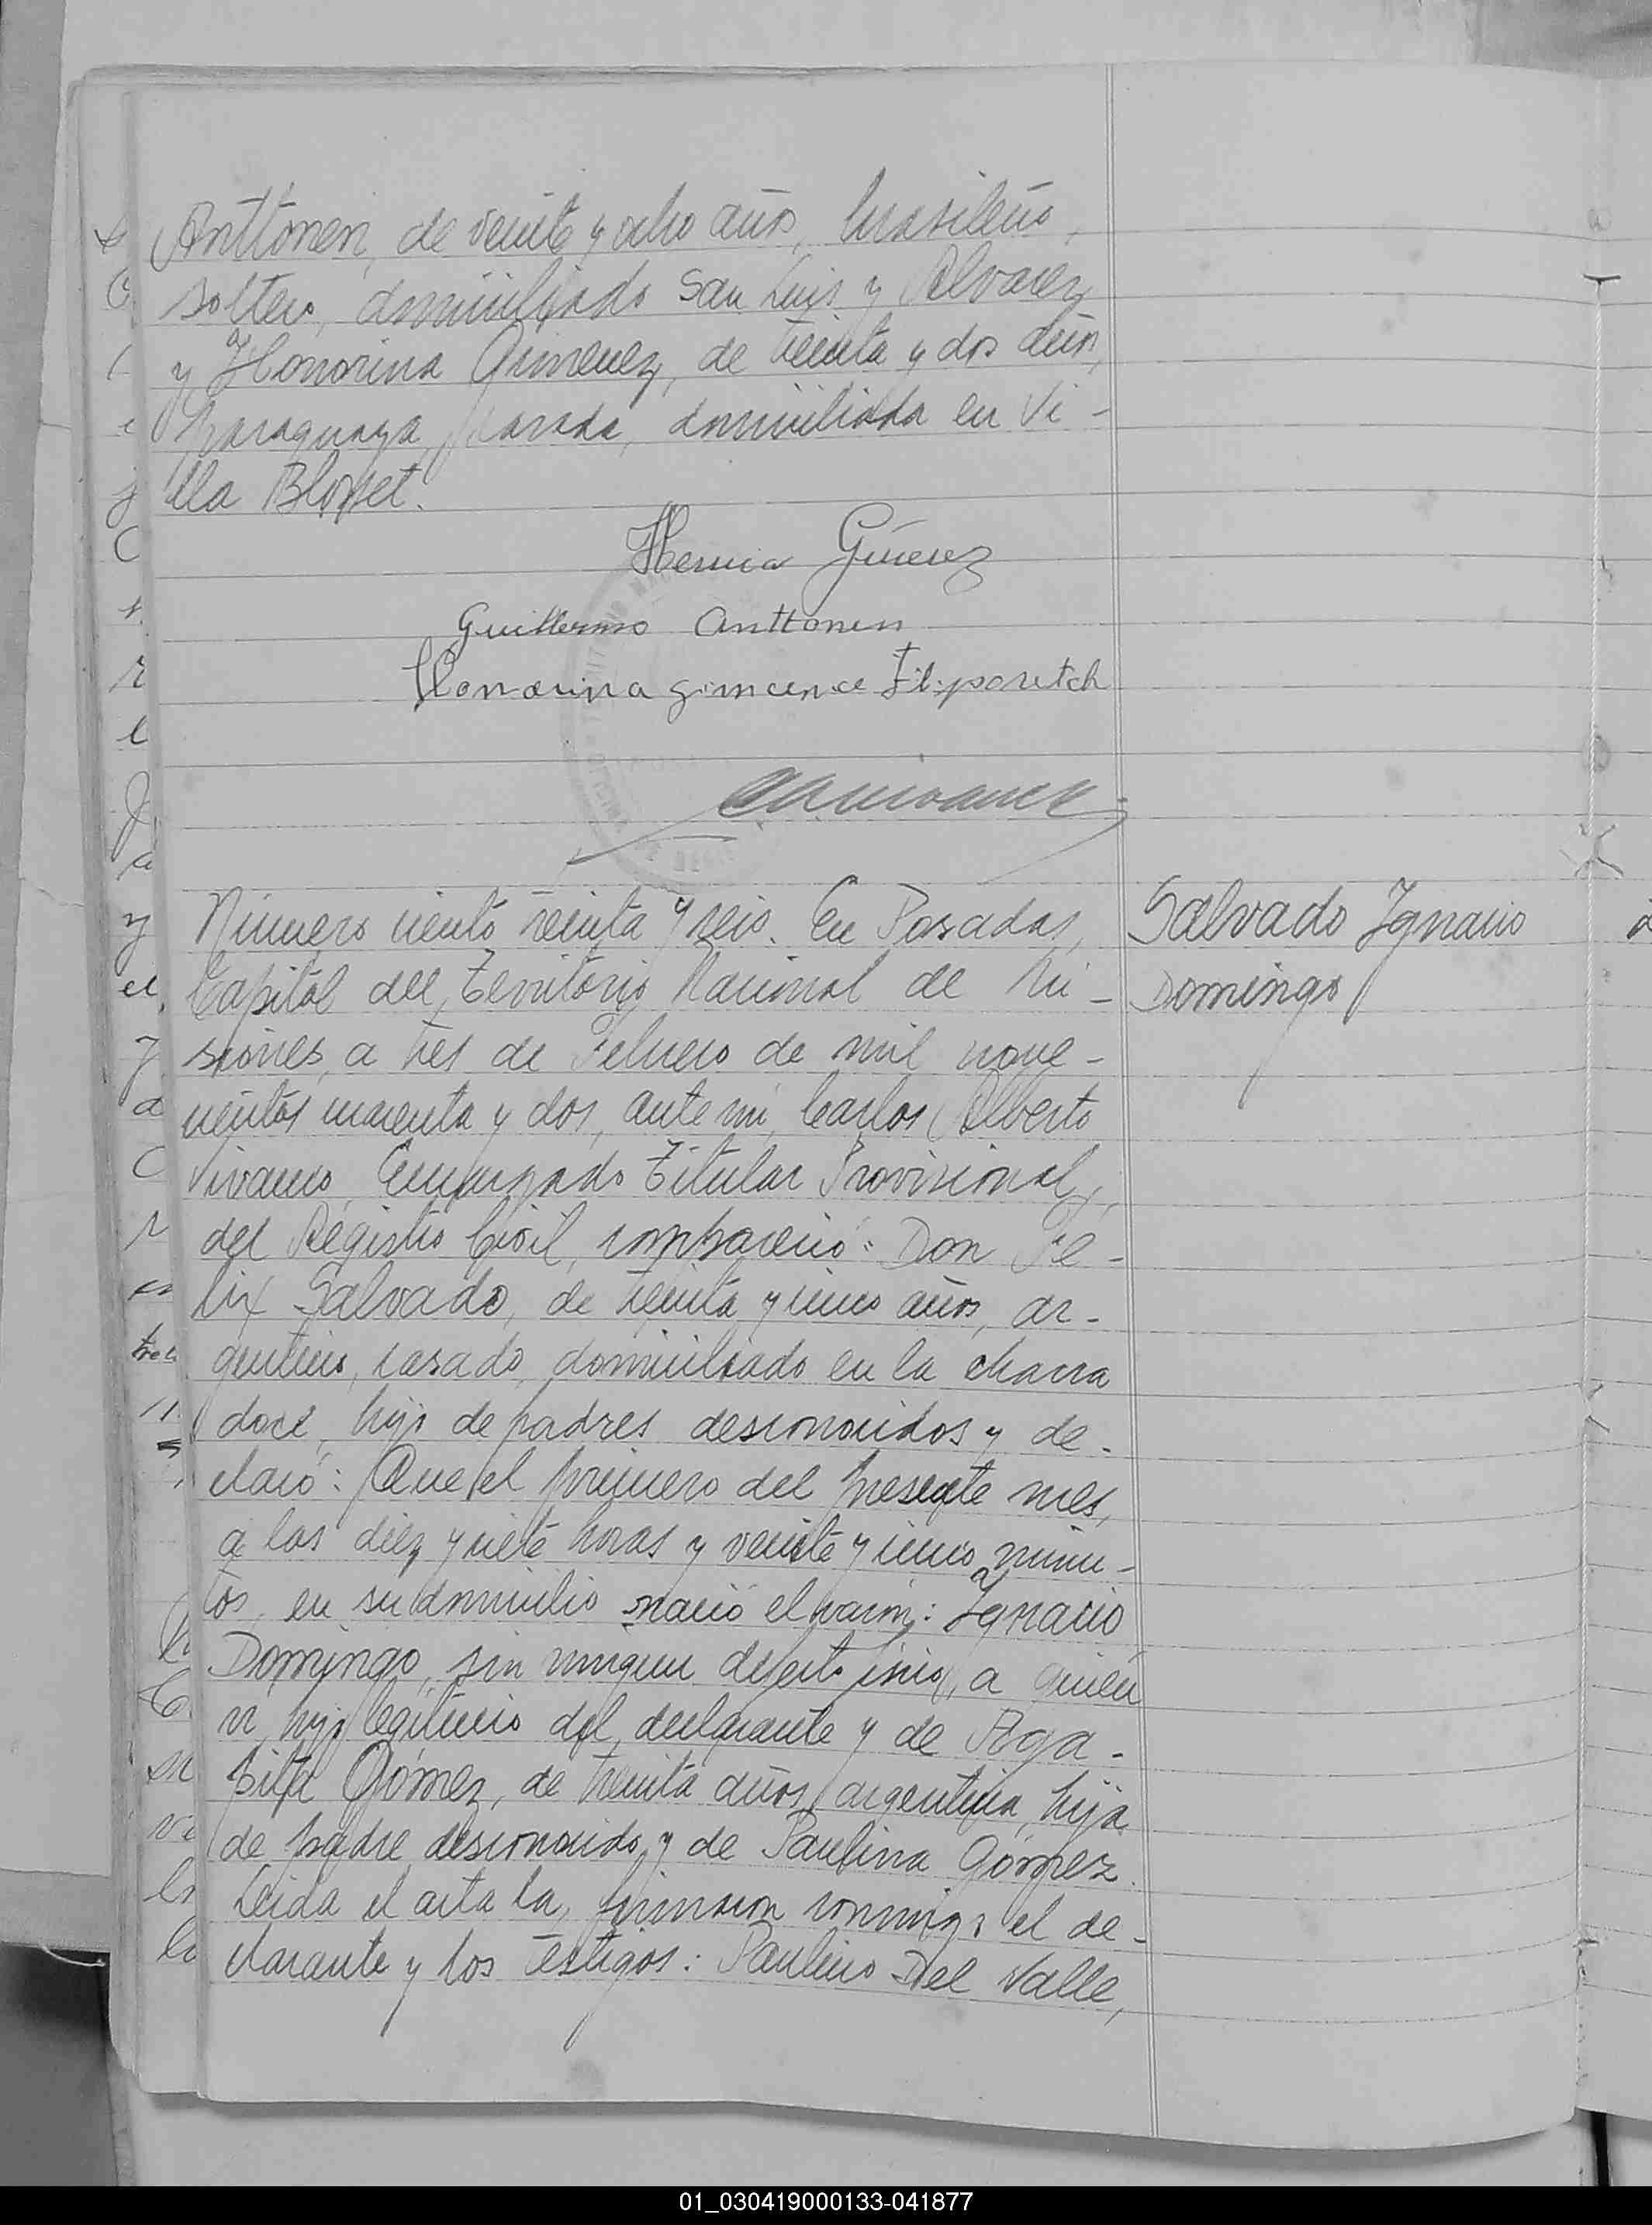 Anttonen, de veinte y ocho años, brasileño,
soltero, domiciliado San Luis y Alvarez
y Honorina Gimenez, de treinta y dos años,
paraguaya, casada, domiciliada en Vi-
lla Blosset.
Gimenez
Guillermo Anttonen
Honorina gimenez
Número ciento treinta y seis. En Posadas,
Capital del Territorio Nacional de Mi-
siones, a tres de Febrero de mil nove-
cientos cuarenta y dos, ante mi, Carlos Alberto
Vivanco, Encargado Titular Provisional,
del Registro Civil, compareció: Don Fe-
lix Salvado, de treinta y cinco años, ar-
gentino, casado, domiciliado en la chacra
doce, hijo de padres desconocidos y de-
claró: Que el primero del presente mes,
a las diez y siete horas y veinte y cinco minu-
tos, en su domicilio nació el varón: Ignacio
Domingo, sin ningun defecto fisico, a quién
vi, hijo legitimo del declarante y de Aga-
pita Gómez, de treinta años, argentina, hija
de padre desconocido y de Paulina Gómez.
Leida el acta la firmaron conmigo el de-
clarante y los testigos: Paulino Del Valle,
Salvado Ignacio
Domingo
01_030419000133-041877